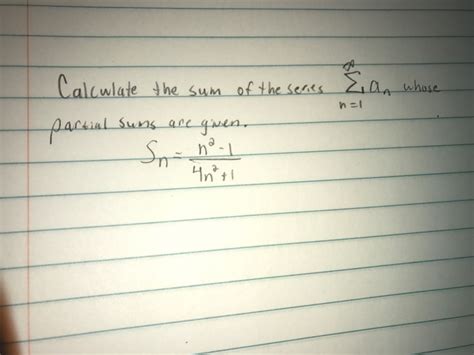 Calculate the sum of the series ∞∑n=1 an whose
partial sums are given.
Sn = n²-1 / 4n²+1